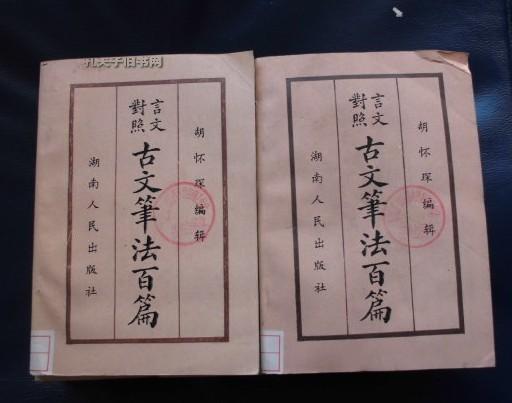 孔夫子旧书网
胡怀琛编辑
言文
對照
古文筆法百篇
湖南人民出版社
胡怀琛编辑
言文
對照
古文筆法百篇
湖南人民出版社